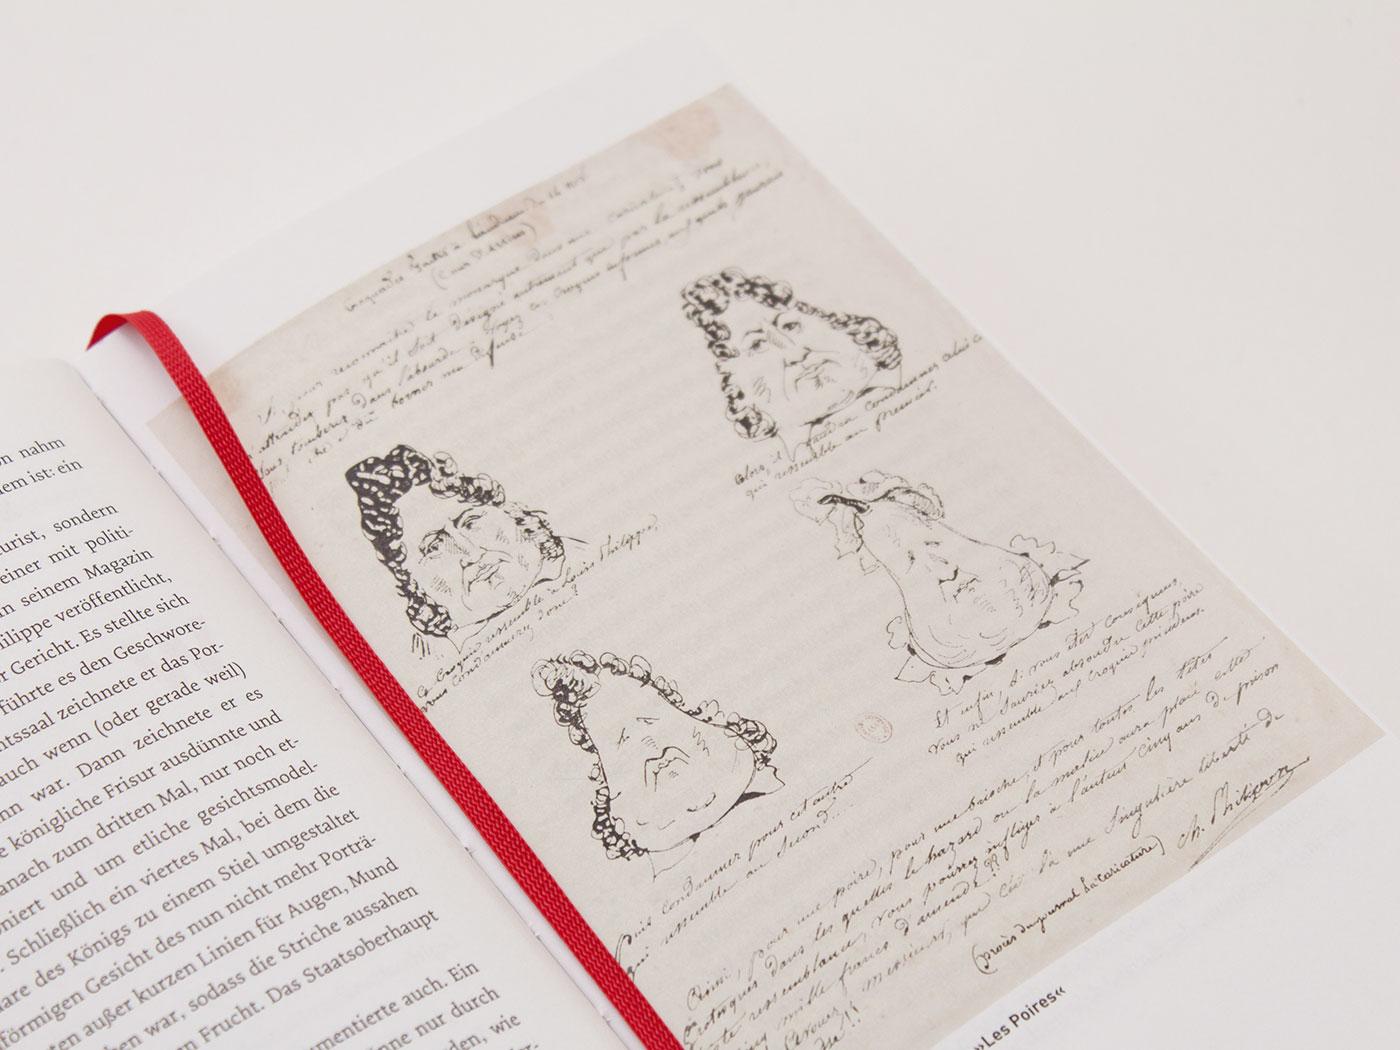 on nahm
dem ist: ein
urist, sondern
einer mit politi-
in seinem Magazin
hilippe veröffentlicht,
r Gericht. Es stellte sich
führte es den Geschwore-
htssaal zeichnete er das Por-
auch wenn (oder gerade weil)
nn war. Dann zeichnete er es
e königliche Frisur ausdünnte und
anach zum dritten Mal, nur noch et-
niert und um etliche gesichtsmodel-
. Schließlich ein viertes Mal, bei dem die
are des Königs zu einem Stiel umgestaltet
förmigen Gesicht des nun nicht mehr Porträ-
ten außer kurzen Linien für Augen, Mund
hen war, sodass die Striche aussahen
n Frucht. Das Staatsoberhaupt
umentierte auch. Ein
önne nur durch
den, wie
(Cour d'assises)
pour reconnaître le monarque dans une caricature, vous
attendez pas qu'il soit désigné autrement que par la ressemblance,
vous tomberez dans l'absurde. Voyez ces croquis informes, auxquels j'aurais
dû borner ma défense:
Ce croquis ressemble à Louis Philippe,
vous condamnerez donc?
Alors, il faudra condamner celui ci
qui ressemble au premier.
Puis condamner pour cet autre
qui ressemble au second..
Et enfin, si vous êtes conséquens,
vous ne sauriez absoudre cette poire
qui ressemble aux croquis précédens.
Ainsi, pour une poire, pour une brioche, et pour toutes les têtes
grotesques dans les quelles le hazard ou la malice aura placé cette
triste ressemblance, vous pourrez infliger à l'auteur cinq ans de prison
et cinq mille francs d'amende!!
Avouez, Messieurs, que c'est là une singulière liberté de
la presse!!
Ch. Philipon
(procès du journal la caricature)
»Les Poires«